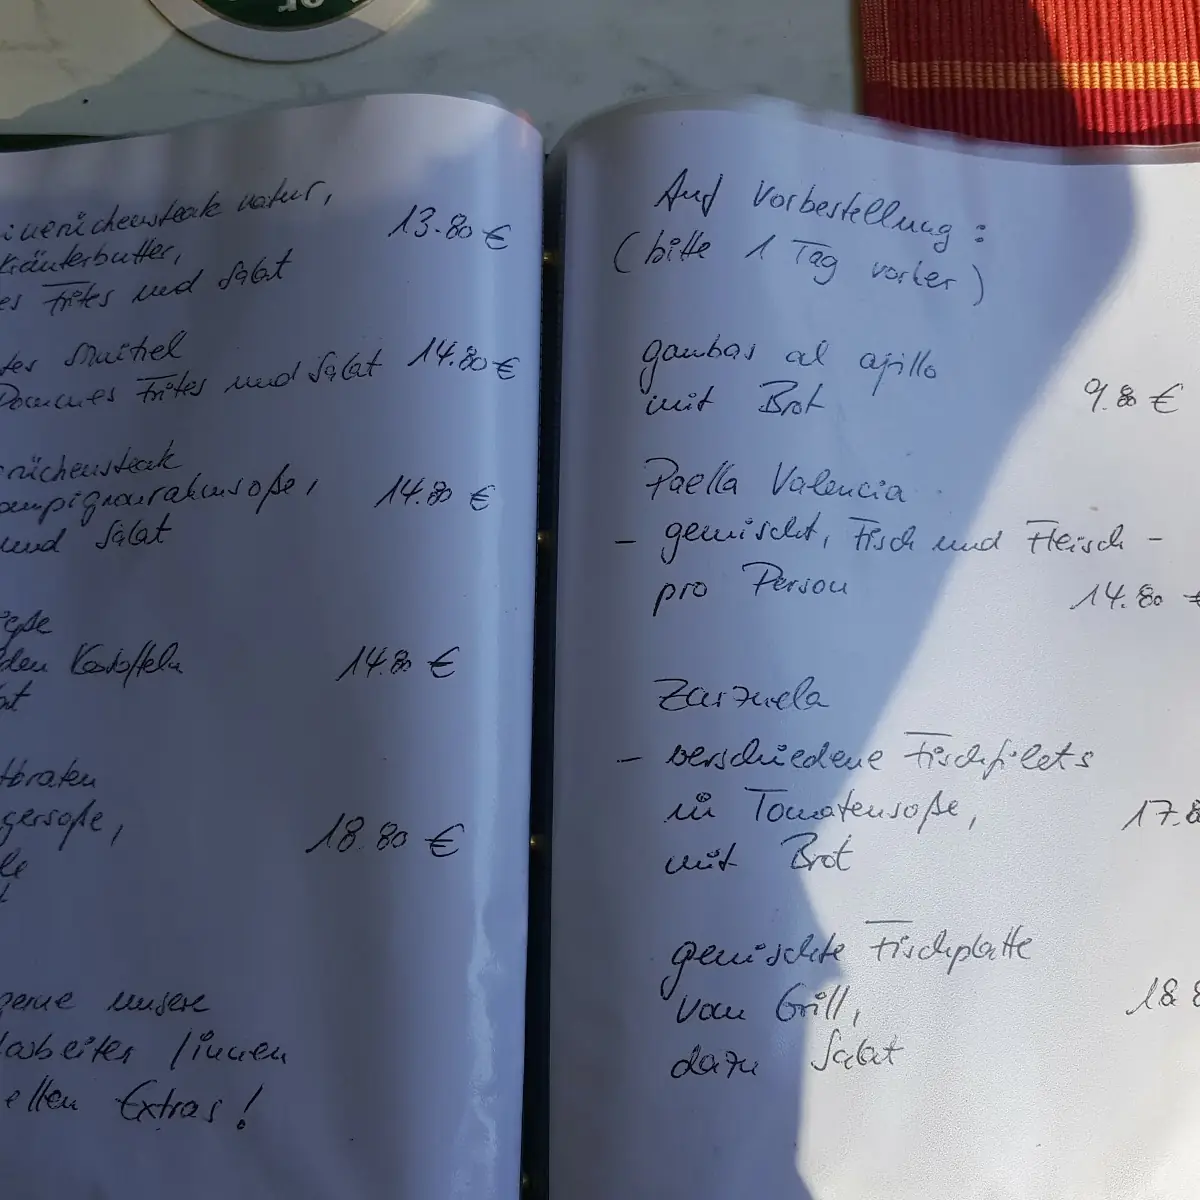 inerückensteak natur,
13.80 €
Kräuterbutter,
es Frites und Salat
tes Snitzel
Pommes Frites und Salat 14.80 €
rückensteak
ampignonrahmsoße,
14.80 €
und Salat
den Kartoffeln
14.80 €
tbraten
gersoße,
18.80 €
gerne unsere
arbeiter/innen
ellen Extras!
Auf Vorbestellung:
(bitte 1 Tag vorher)
gambas al ajillo
mit Brot
9.80 €
Paella Valencia
- gemischt, Fisch und Fleisch -
pro Person
14.80 €
Zarzuela
- verschiedene Fischfilets
in Tomatensoße,
17.8
mit Brot
gemischte Fischplatte
vom Grill,
18.8
dazu Salat